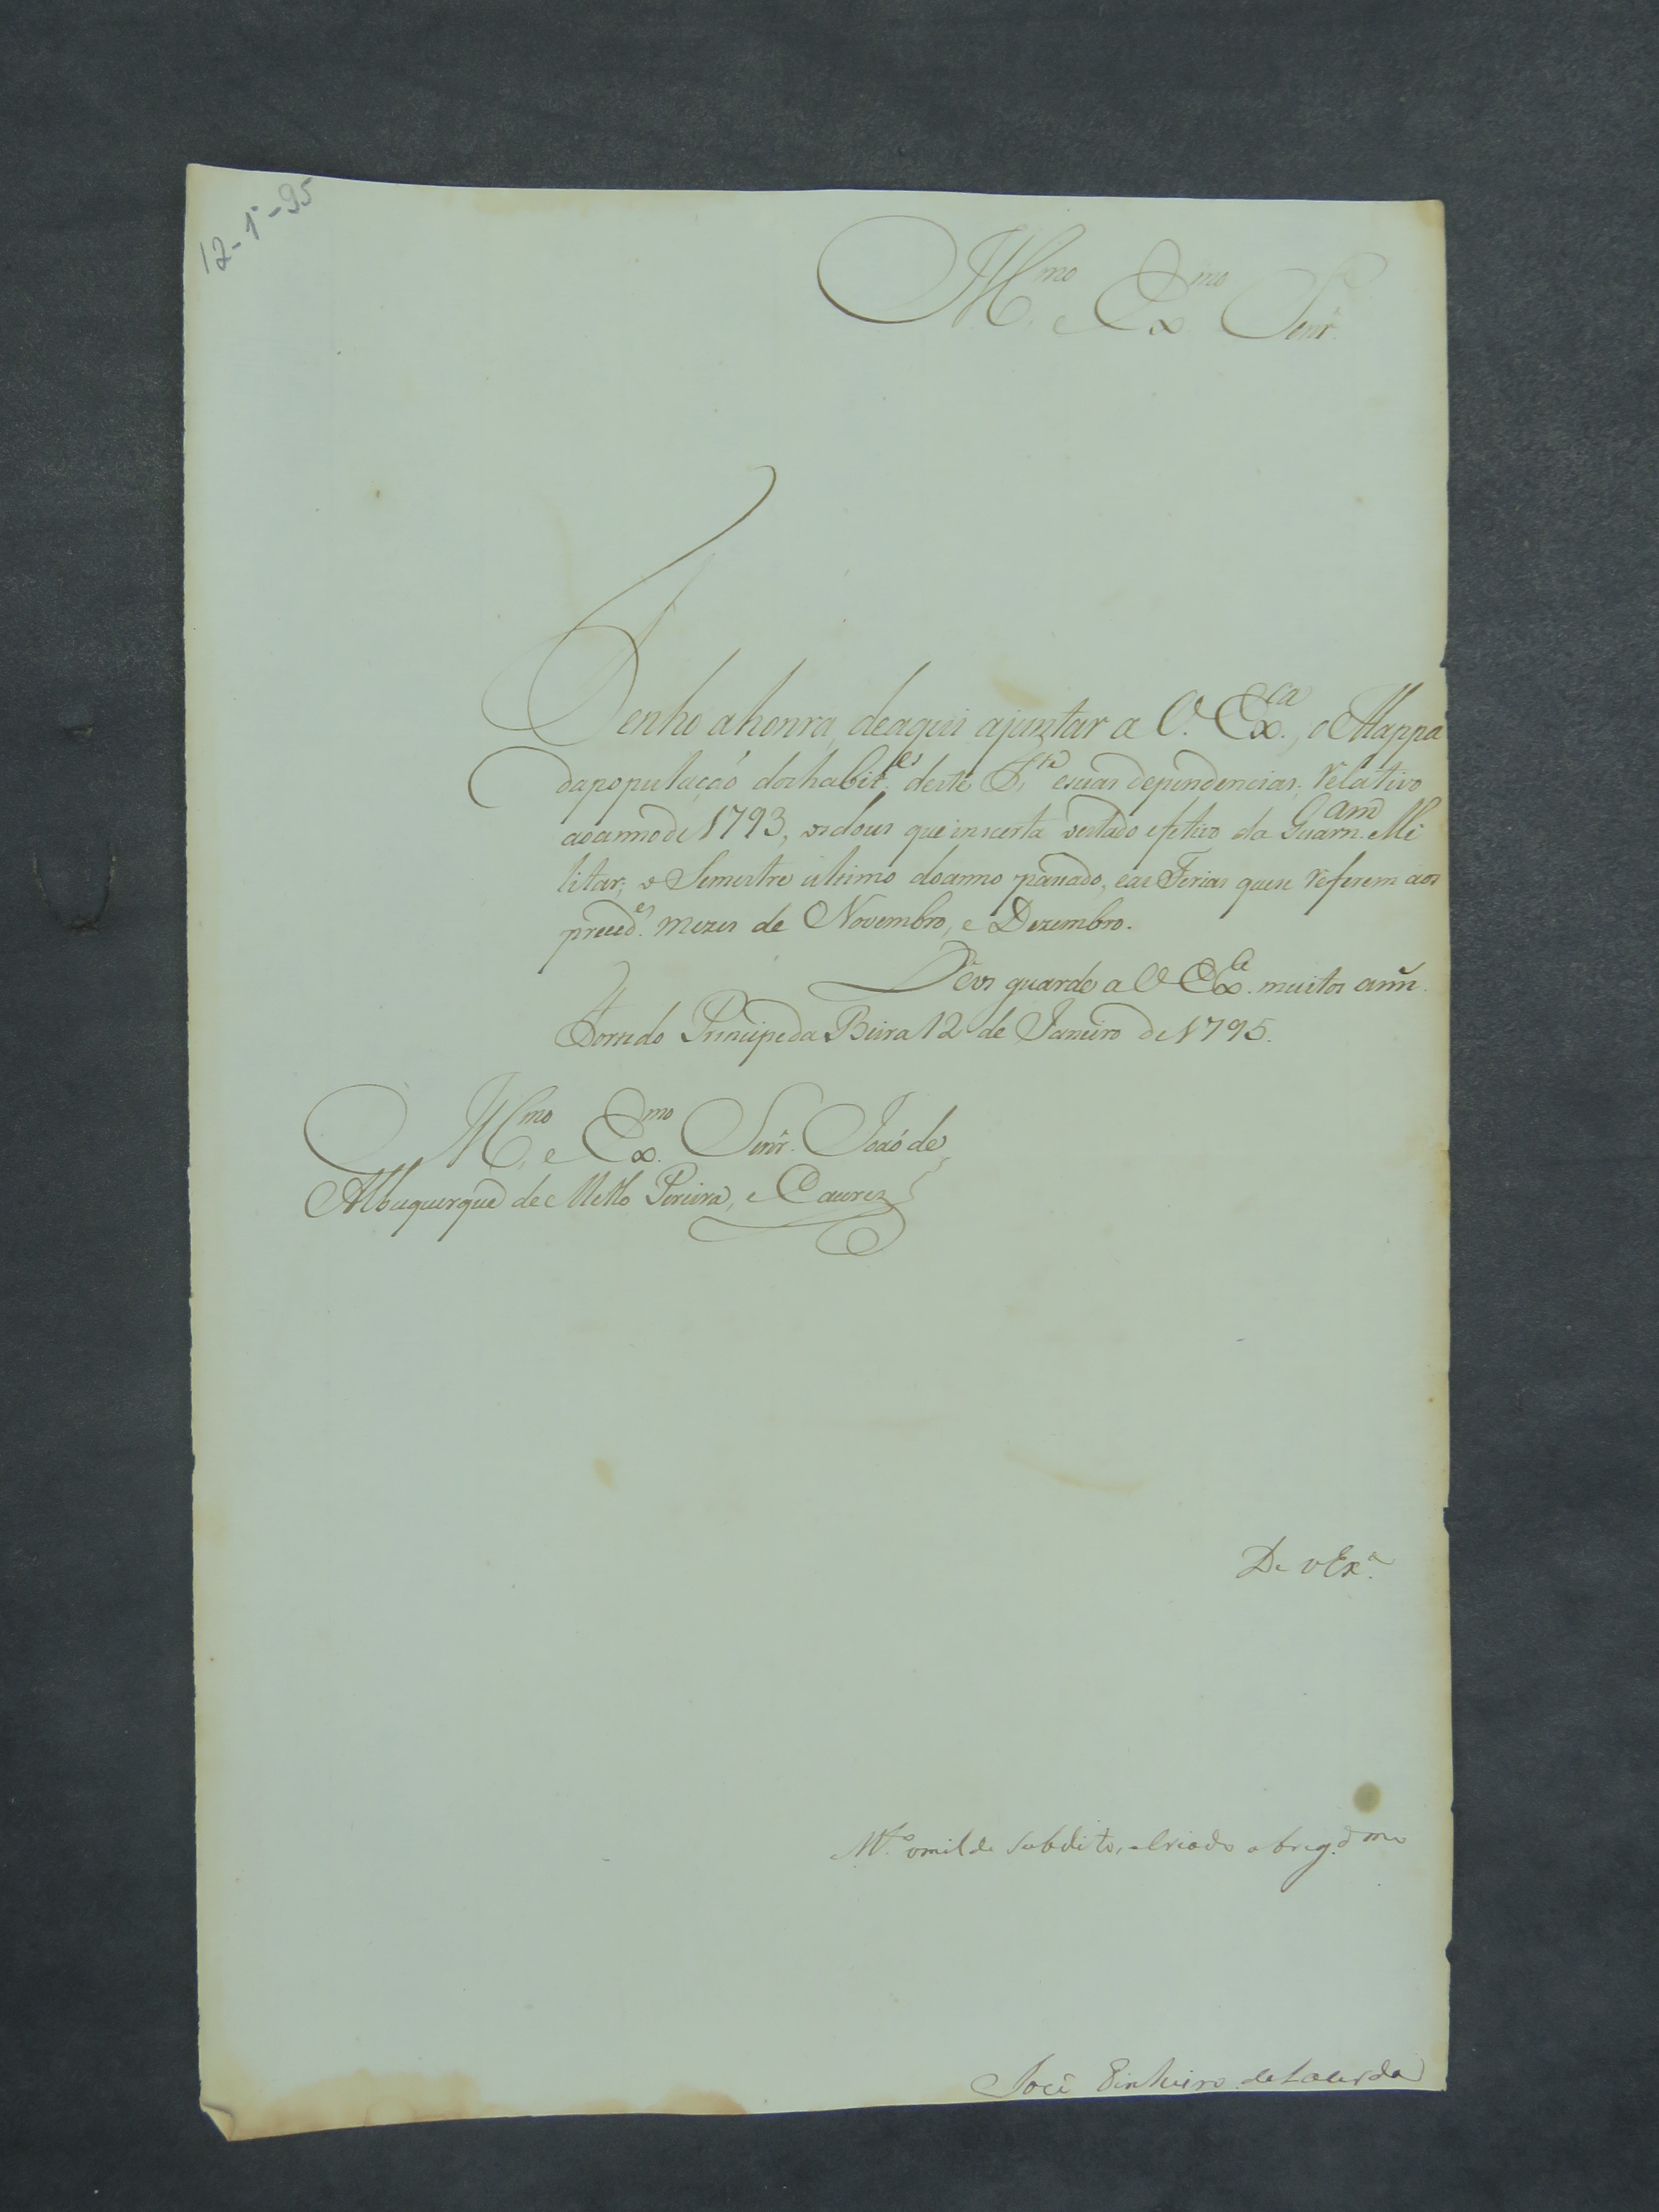 12-1º-95
Ill.mo e Ex.mo Senr.
Tenho ahonra, deaqui ajuntar a V. Ex.ca, o Mappa
dapopulação doshabit.es deste F.te esuas dependencias, relativo
aoannode 1793, osdous que inserta oestado efetivo da Guarn.am Mi
litar, o Semestre ultimo doanno passado, eas Ferias quese referem aos
preced.es mezes de Novembro, e Dezembro.
Deos guarde a V Ex.ca muitos ann.
Forte do Principe da Beira 12 de Janeiro de 1795.
Ill.mo e Ex.mo Senr. João de
Albuquerque de Mello Pereira, e Caceres
De V Ex.a
M.to omilde Subdito, e Criado obrig.dmo
José Pinheiro de Lacerda